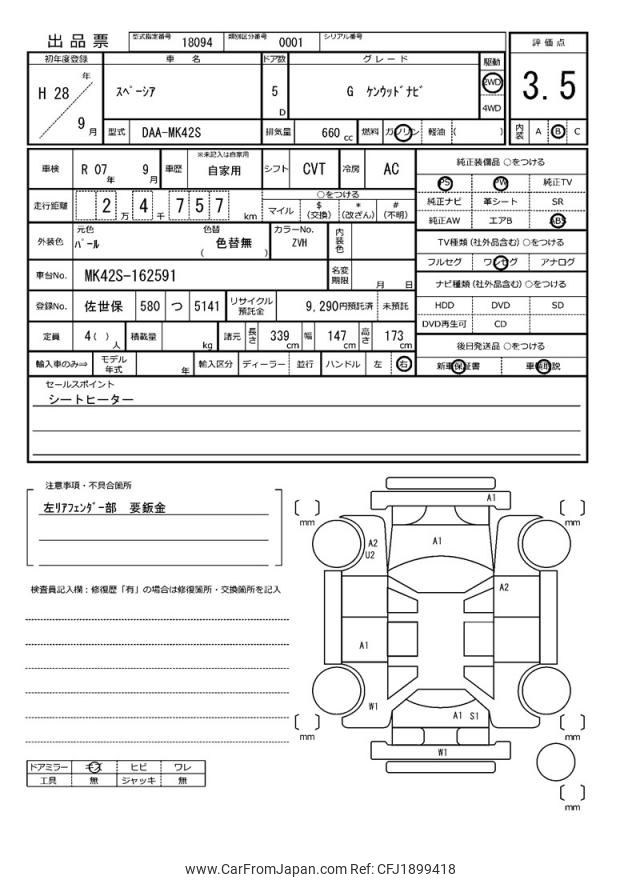 出品票 型式指定番号 18094 類別区分番号 0001 シリアル番号
初年度登録 車名 ドア数 グレード 駆動 評価点
H 28 年 9 月 スペーシア 5 D G ケンウッドナビ 2WD 4WD 3.5
型式 DAA-MK42S 排気量 660 cc 燃料 ガソリン 軽油 ( ) 内装 A B C
車検 R 07 年 9 月 車歴 ※未記入は自家用 自家用 シフト CVT 冷房 AC
走行距離 2 万 4 千 7 5 7 km ○をつける マイル $ (交換) * (改ざん) # (不明)
外装色 元色 パール 色替 ( 色替無 ) カラーNo. ZVH 内装色
車台No. MK42S-162591 名変期限 月 日
登録No. 佐世保 580 つ 5141 リサイクル預託金 9,290円預託済 未預託
定員 4( ) 人 積載量 kg 諸元 長さ 339 cm 幅 147 cm 高さ 173 cm
輸入車のみ⇒ モデル年式 年 輸入区分 ディーラー 並行 ハンドル 左 右
純正装備品 ○をつける
PS PW 純正TV
純正ナビ 革シート SR
純正AW エアB ABS
TV種類 (社外品含む) ○をつける
フルセグ ワンセグ アナログ
ナビ種類 (社外品含む) ○をつける
HDD DVD SD
DVD再生可 CD
後日発送品 ○をつける
新車保証書 車輌取説
セールスポイント
シートヒーター
注意事項・不具合箇所
左リアフェンダー部 要鈑金
検査員記入欄：修復歴「有」の場合は修復箇所・交換箇所を記入
ドアミラー キズ ヒビ ワレ
工具 無 ジャッキ 無
A1
mm
mm
A2
U2
A1
A2
A1
W1
A1 S1
mm
W1
mm
mm
www.CarFromJapan.com Ref: CFJ1899418